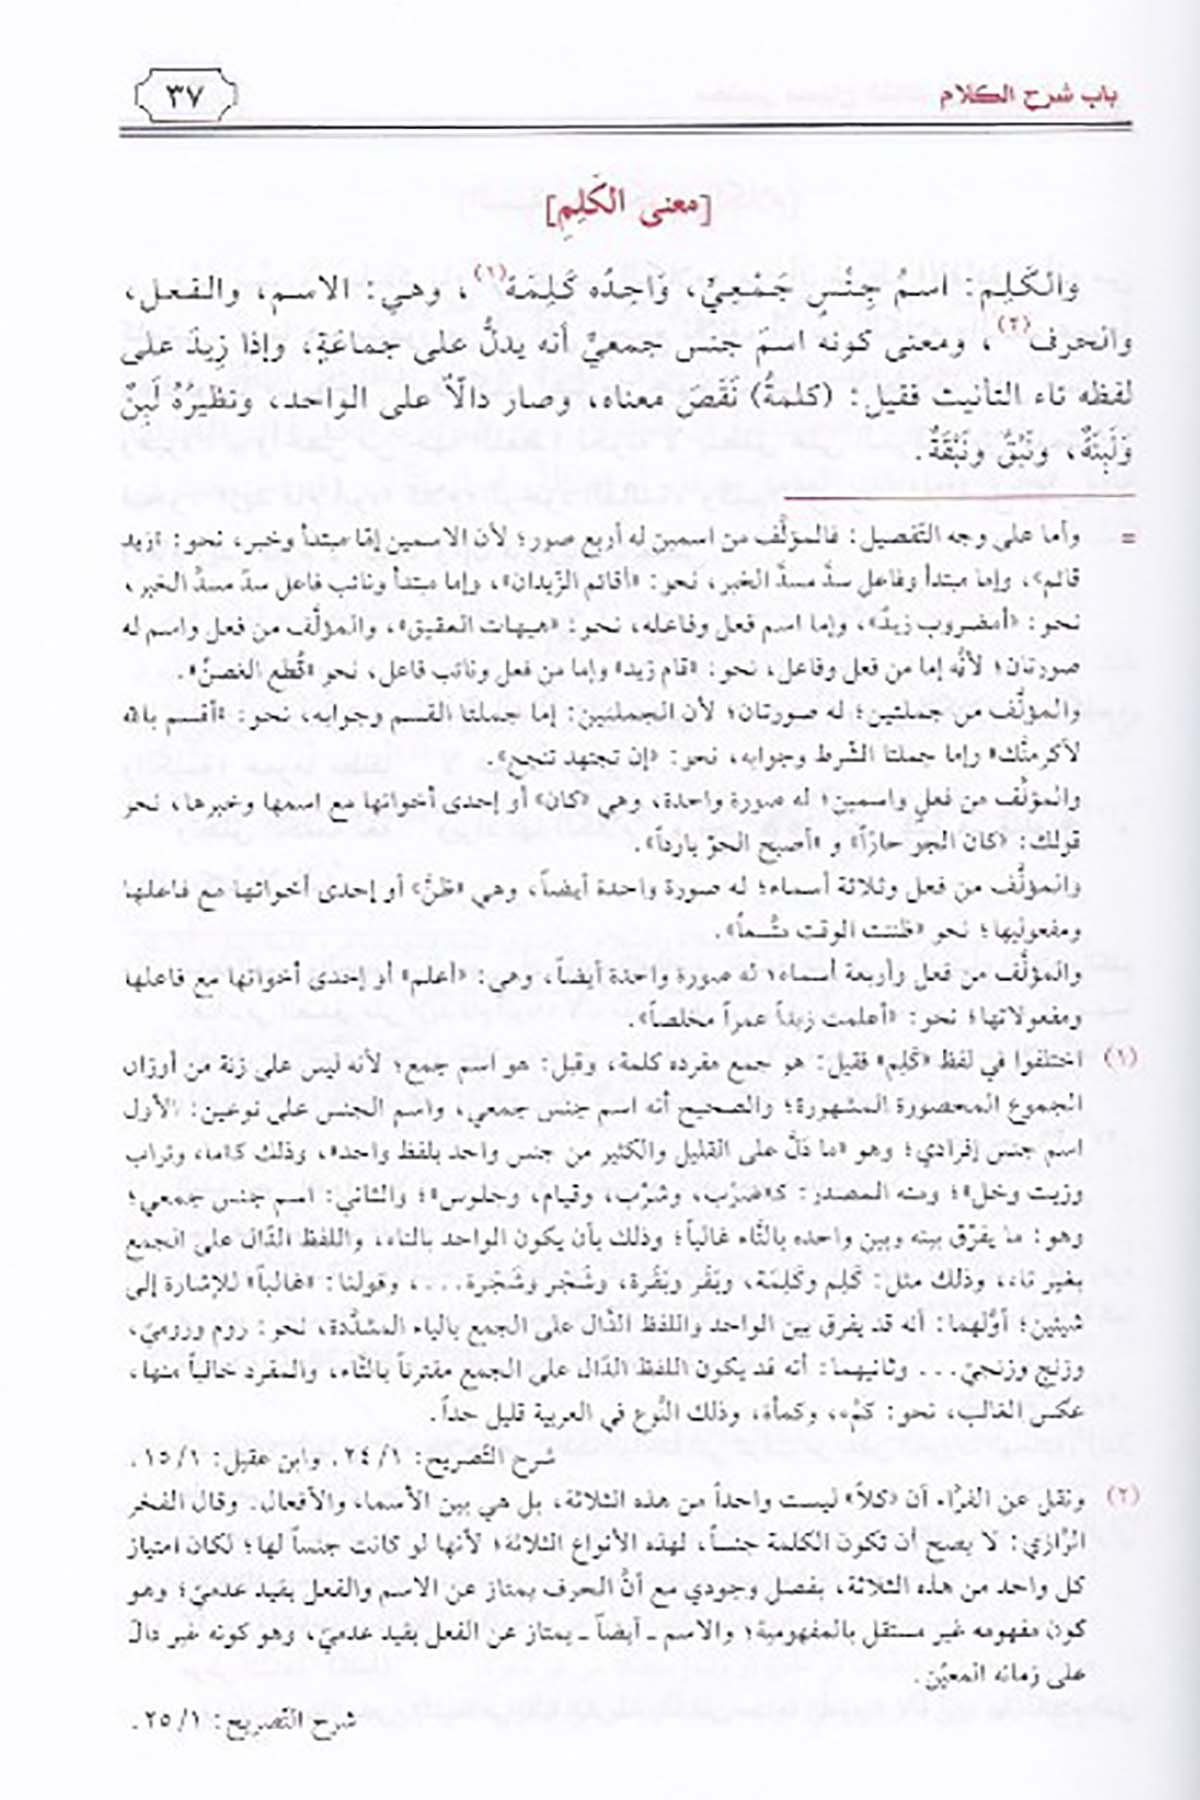 باب شرح الكلام
٣٧
[معنى الكَلِمِ]
والكَلِم: اسمُ جِنْسٍ جَمْعِيٌّ، وَاحِدُه كَلِمَةٌ(١)، وهي: الاسم، والفعل،
والحرف(٢)، ومعنى كونه اسمَ جنس جمعيٍّ أنه يدلُّ على جماعَةٍ، وإذا زِيدَ على
لفظه تاء التأنيث فقيل: (كلمةٌ) نَقَصَ معناه، وصار دالّاً على الواحد، ونظيرُهُ لَبِنٌ
وَلَبِنَةٌ، ونَبْقٌ ونَبْقَةٌ.
= وأما على وجه التّفصيل: فالمؤلَّف من اسمين له أربع صور؛ لأن الاسمين إمّا مبتدأ وخبر، نحو: «زيد
قائم»، وإما مبتدأ وفاعل سدَّ مسدَّ الخبر، نحو: «أقائم الزّيدان»، وإما مبتدأ ونائب فاعل سدّ مسدَّ الخبر،
نحو: «أمضروب زيدٌ»، وإما اسم فعل وفاعله، نحو: «هيهات العقيق»، والمؤلَّف من فعل واسم له
صورتان؛ لأنّه إما من فعل وفاعل، نحو: «قام زيد» وإما من فعل ونائب فاعل، نحو «قُطع الغصنُ».
والمؤلَّف من جملتين؛ له صورتان؛ لأن الجملتين: إما جملتا القسم وجوابه، نحو: «أقسم بالله
لأكرمنّك» وإما جملتا الشّرط وجوابه، نحو: «إن تجتهد تنجح».
والمؤلَّف من فعلٍ واسمين؛ له صورة واحدة، وهي «كان» أو إحدى أخواتها مع اسمها وخبرها، نحو
قولك: «كان الجو حارّاً» و «أصبح الحرّ بارداً».
والمؤلَّف من فعل وثلاثة أسماء؛ له صورة واحدة أيضاً، وهي «ظنَّ» أو إحدى أخواتها مع فاعلها
ومفعوليها؛ نحو «ظننت الوقت متّسعاً».
والمؤلَّف من فعل وأربعة أسماء؛ له صورة واحدة أيضاً، وهي: «أعلم» أو إحدى أخواتها مع فاعلها
ومفعولاتها؛ نحو: «أعلمت زيداً عمراً مخلصاً».
(١) اختلفوا في لفظ «كَلِم» فقيل: هو جمع مفرده كلمة، وقيل: هو اسم جمع؛ لأنه ليس على زنة من أوزان
الجموع المحصورة المشهورة؛ والصحيح أنه اسم جنس جمعي، واسم الجنس على نوعين: الأول
اسم جنس إفرادي؛ وهو «ما دلَّ على القليل والكثير من جنس واحد بلفظ واحد»، وذلك كماء، وتراب
وزيت وخل»؛ ومنه المصدر: كـ«ضَرْب، وشرْب، وقيام، وجلوس»؛ والثاني: اسم جنس جمعي؛
وهو: ما يفرّق بينه وبين واحده بالتّاء غالباً؛ وذلك بأن يكون الواحد بالتاء، واللفظ الدّال على الجمع
بغير تاء، وذلك مثل: كَلِم وكَلِمَة، وبَقَر وبَقَرة، وشَجَر وشَجَرة...، وقولنا: «غالباً» للإشارة إلى
شيئين؛ أوّلهما: أنه قد يفرق بين الواحد واللفظ الدّال على الجمع بالياء المشدّدة، نحو: روم وروميّ،
وزنج وزنجيّ... وثانيهما: أنه قد يكون اللفظ الدّال على الجمع مقترناً بالتّاء، والمفرد خالياً منها،
عكس الغالب، نحو: كمْء، وكمأة، وذلك النّوع في العربية قليل جداً.
شرح التّصريح: ٢٤/١. وابن عقيل: ١٥/١.
(٢) ونقل عن الفرّاء أن «كلاً» ليست واحداً من هذه الثلاثة، بل هي بين الأسماء والأفعال. وقال الفخر
الرّازي: لا يصح أن تكون الكلمة جنساً، لهذه الأنواع الثلاثة؛ لأنها لو كانت جنساً لها؛ لكان امتياز
كل واحد من هذه الثلاثة، بفصل وجودي مع أنَّ الحرف يمتاز عن الاسم والفعل بقيد عدميّ؛ وهو
كون مفهومه غير مستقل بالمفهومية؛ والاسم ـ أيضاً ـ يمتاز عن الفعل بقيد عدميّ، وهو كونه غير دالّ
على زمانه المعيّن.
شرح التّصريح: ٢٥/١.